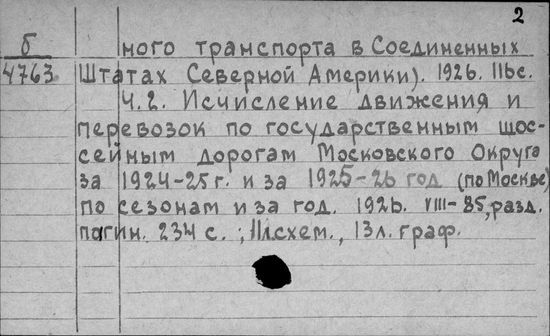 2
б
4763
ного транспорта в Соединенных
Штатах Северной Америки). 1926. 116с.
Ч.2. Исчисление движения и
перевозок по государственным шос-
сейным дорогам Московского Округа
за 1924-25 г. и за 1925-26 год (по Москве)
по сезонам и за год. 1926. VIII-85, разд.
пагин. 234 с.; 11л.схем., 13л. граф.